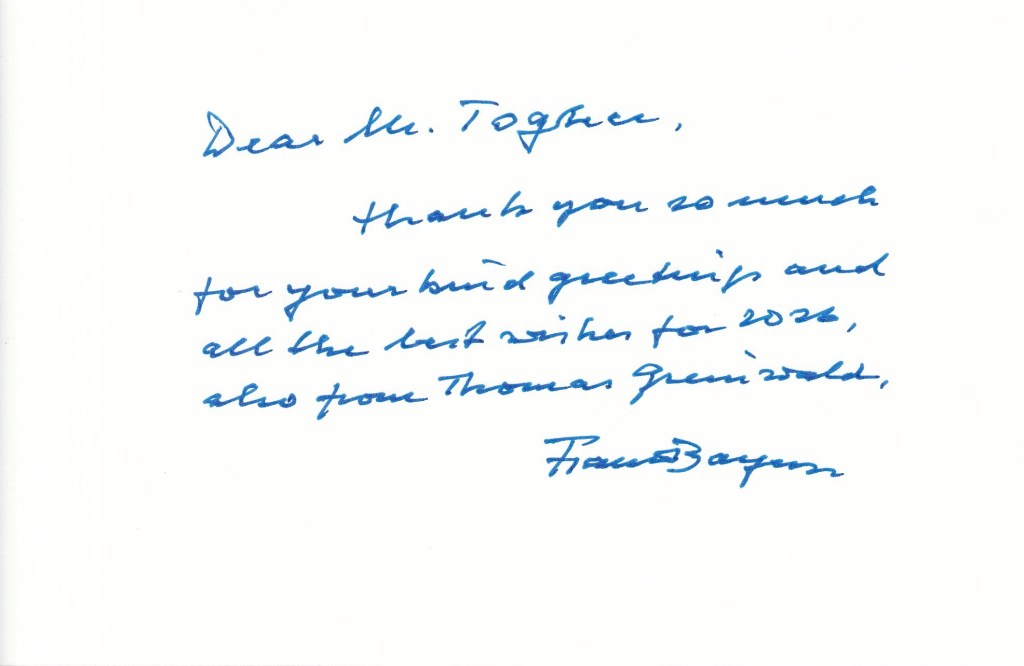 Dear Mr. Togher,
thank you so much
for your kind greetings and
all the best wishes for 2026,
also from Thomas
Franz Bayer